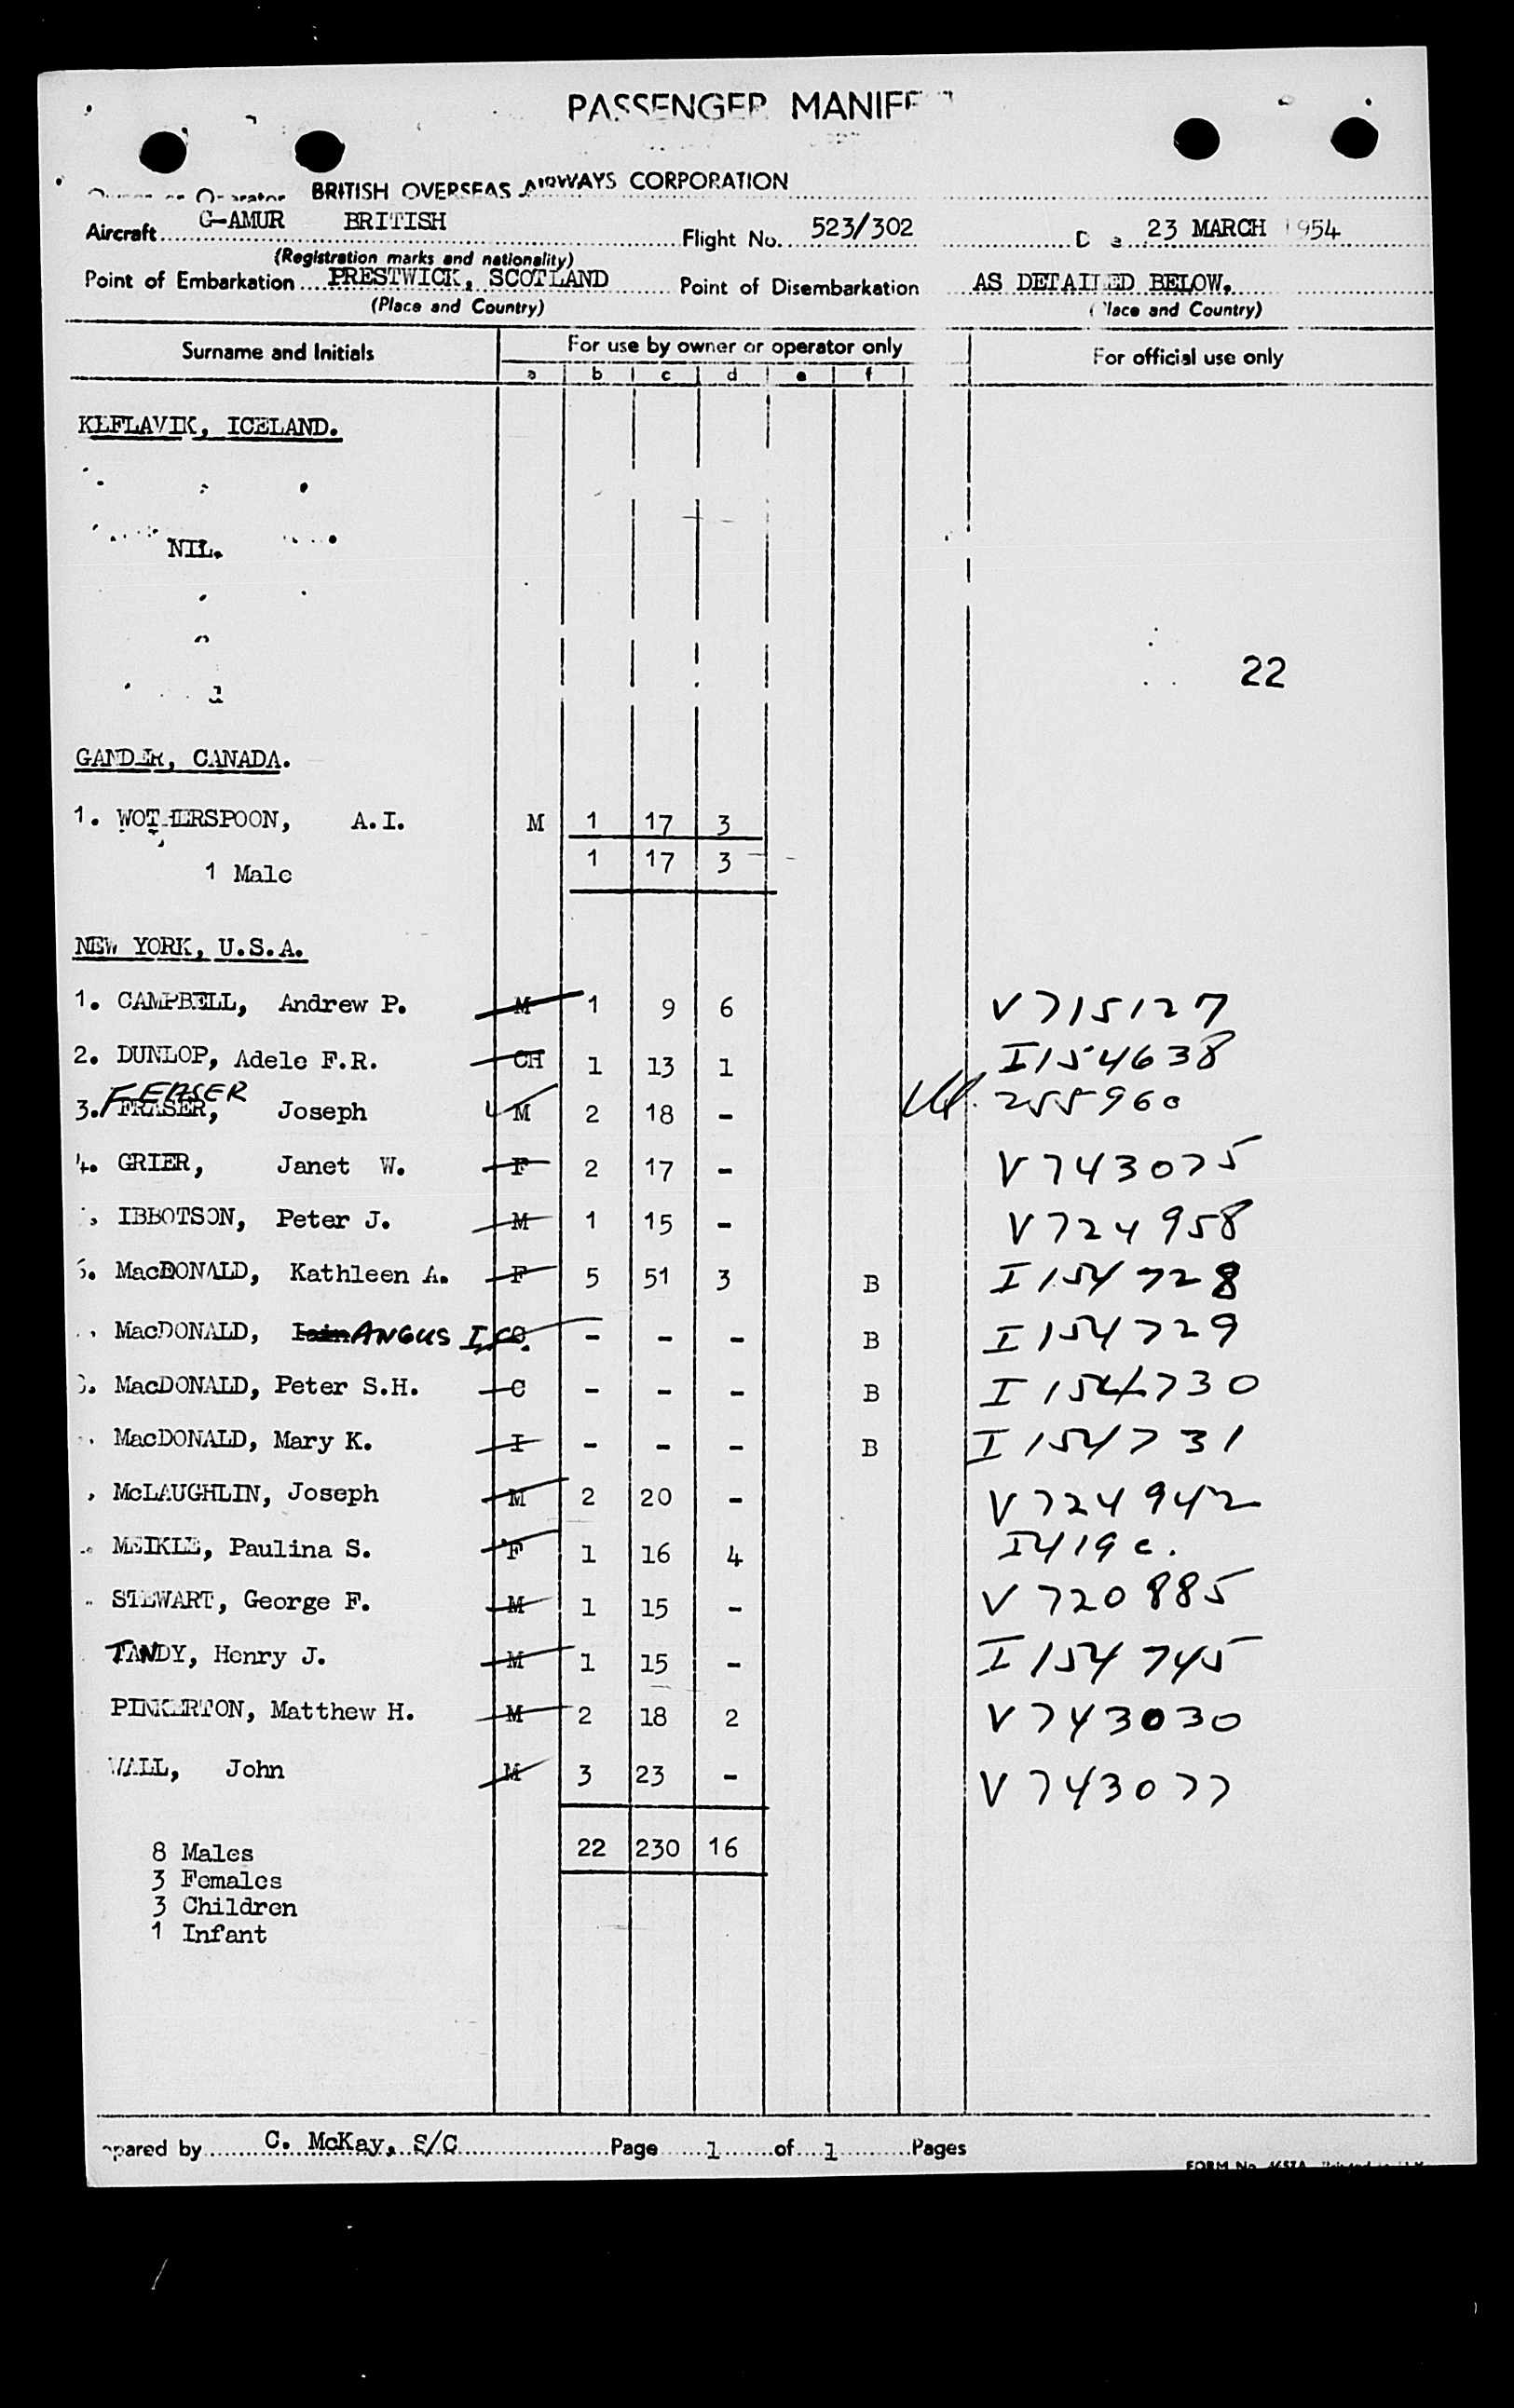 PASSENGER MANIFE
BRITISH OVERSEAS AIRWAYS CORPORATION
Aircraft G-AMUR BRITISH Flight No. 523/302 23 MARCH 1954
(Registration marks and nationality)
Point of Embarkation PRESTWICK, SCOTLAND Point of Disembarkation AS DETAILED BELOW.
(Place and Country) (Place and Country)
Surname and Initials For use by owner or operator only For official use only
a b c d e f
KEFLAVIK, ICELAND.
NIL.
22
GANDER, CANADA.
1. WOTHERSPOON, A.I. M 1 17 3
1 17 3
1 Male
NEW YORK, U.S.A.
1. CAMPBELL, Andrew P. M 1 9 6 V715127
2. DUNLOP, Adele F.R. CH 1 13 1 I154638
FEASER
3. FRASER, Joseph M 2 18 - 255960
4. GRIER, Janet W. F 2 17 - V743075
IBBOTSON, Peter J. M 1 15 - V724958
6. MacDONALD, Kathleen A. F 5 51 3 B I154728
MacDONALD, Iain ANGUS I, C - - - B I154729
8. MacDONALD, Peter S.H. C - - - B I154730
MacDONALD, Mary K. I - - - B I154731
McLAUGHLIN, Joseph M 2 20 - V724942
MEIKLE, Paulina S. F 1 16 4 I419c.
STEWART, George F. M 1 15 - V720885
TANDY, Henry J. M 1 15 - I154745
PINKERTON, Matthew H. M 2 18 2 V743030
WALL, John M 3 23 - V743077
22 230 16
8 Males
3 Females
3 Children
1 Infant
pared by C. McKay, S/C Page 1 of 1 Pages
FORM No.